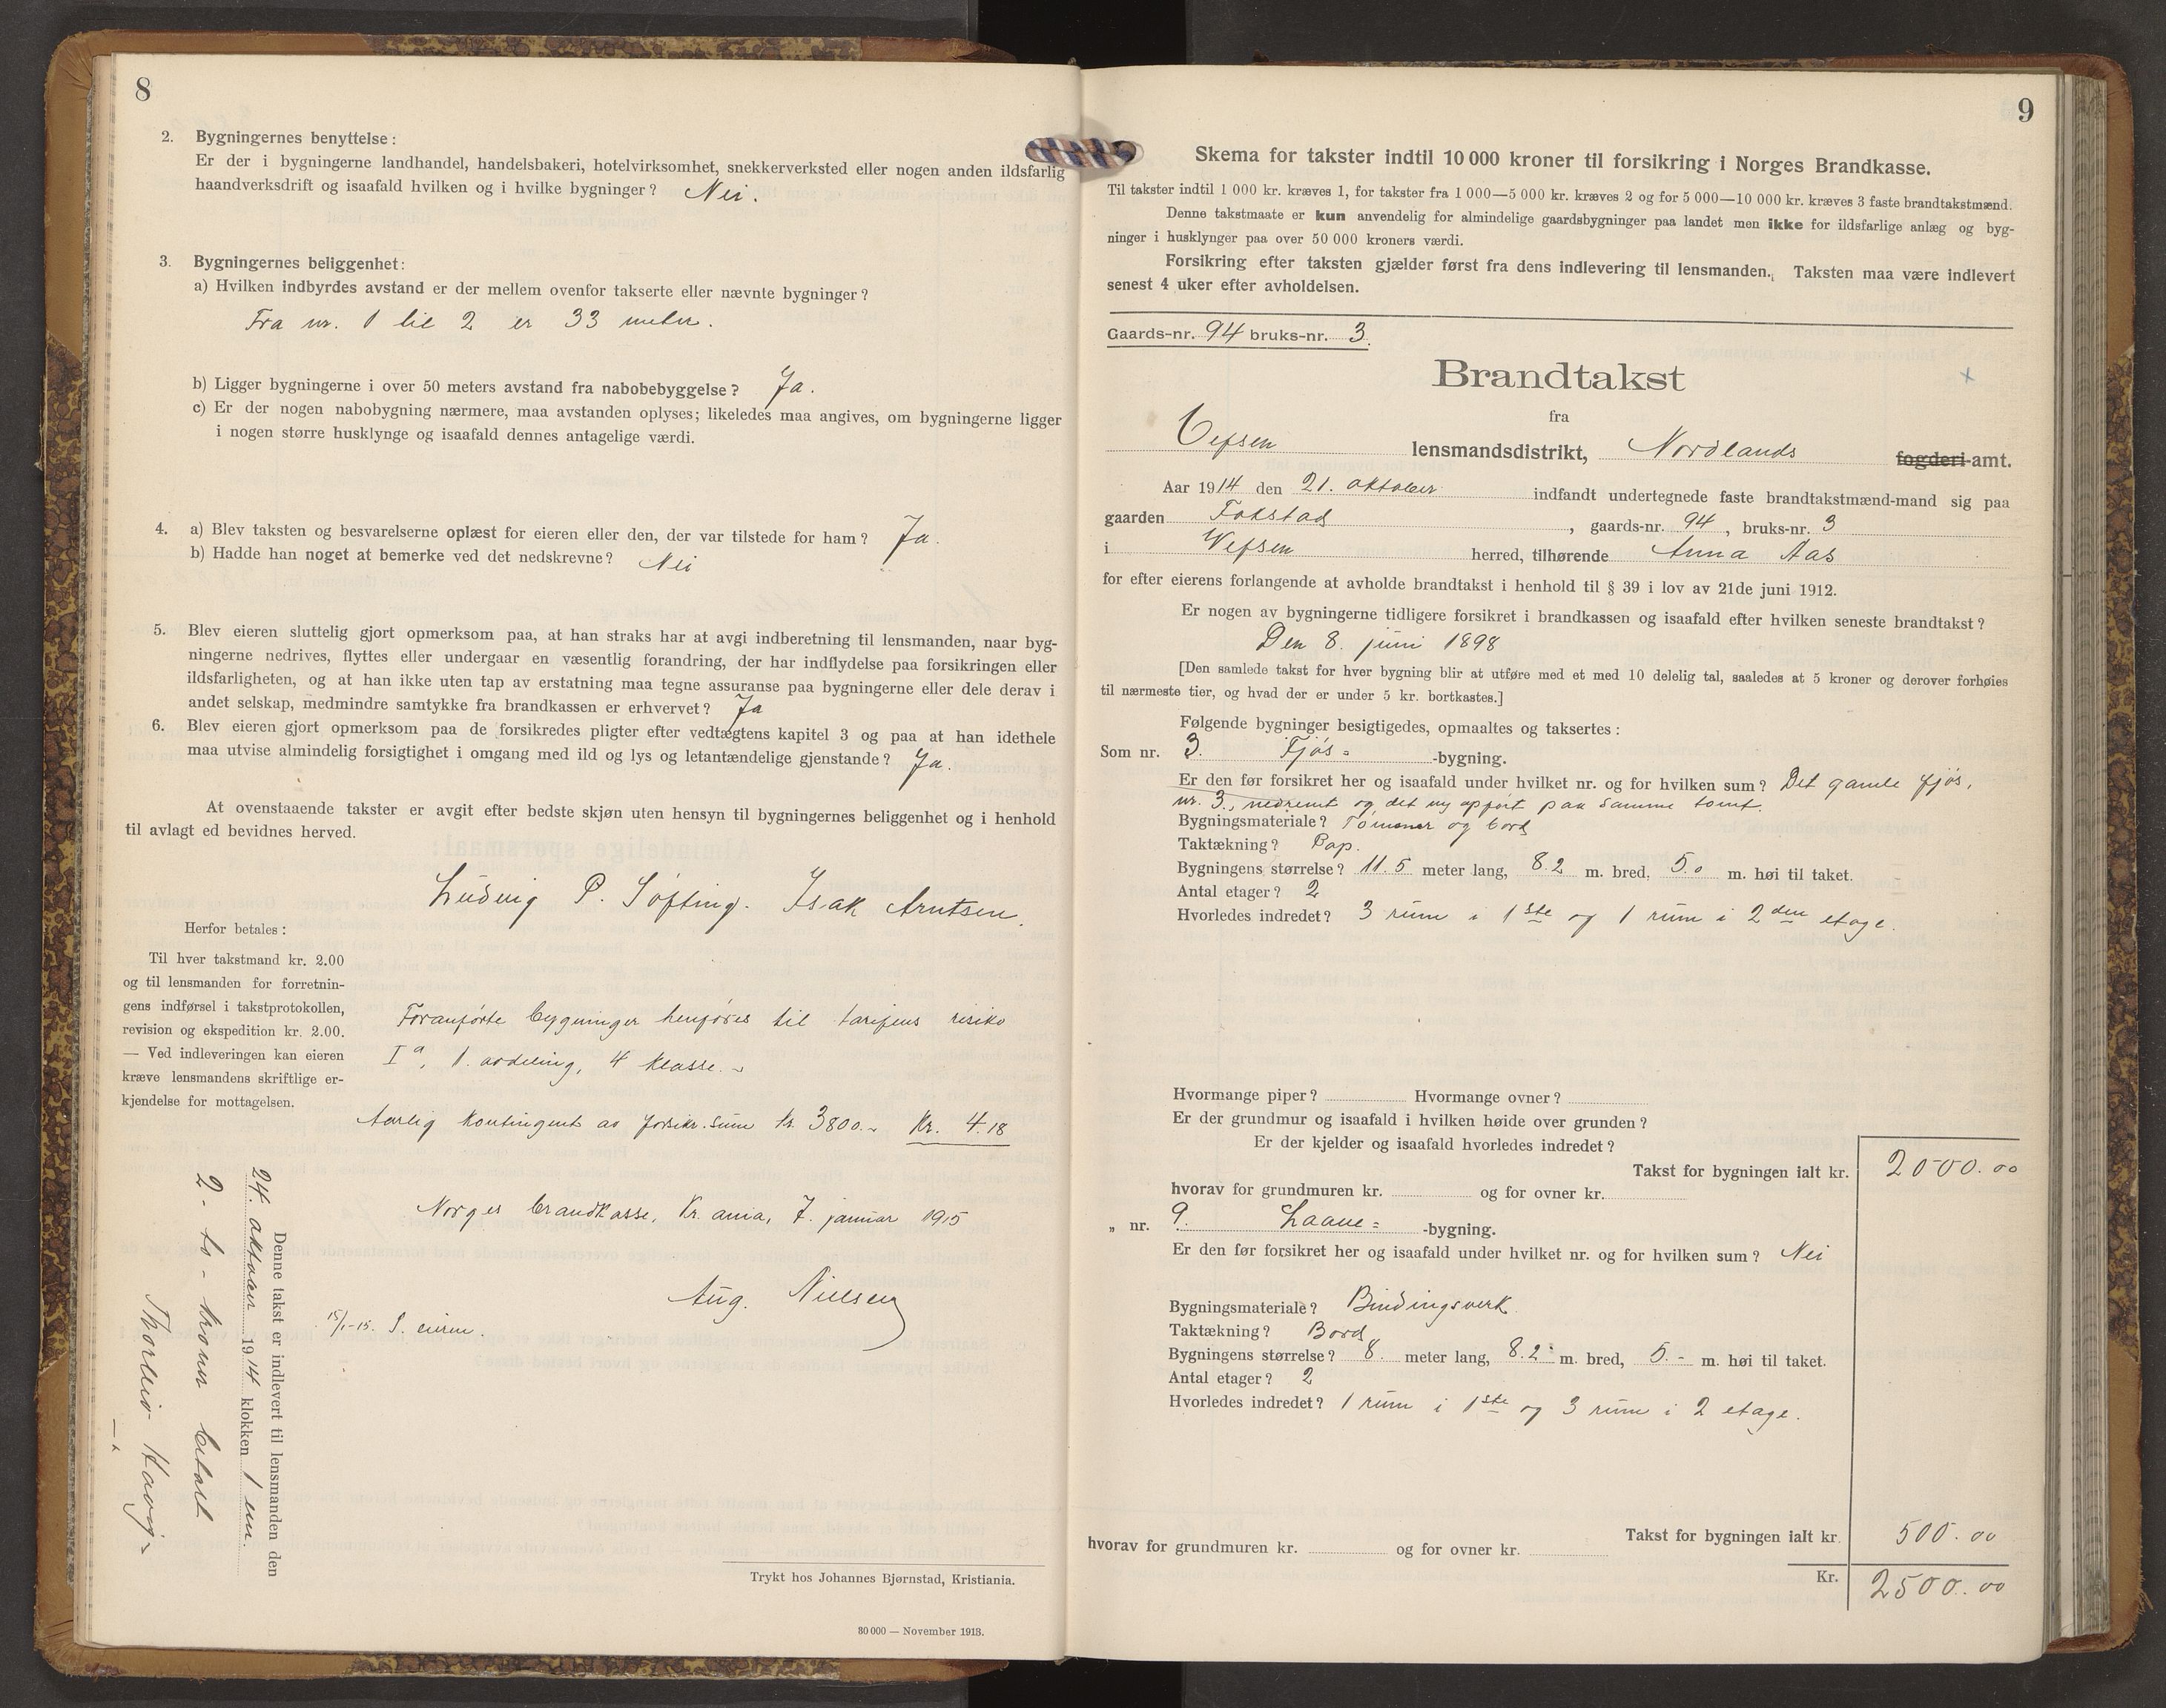 8
2. Bygningernes benyttelse:
Er der i bygningerne landhandel, handelsbakeri, hotelvirksomhet, snekkerverksted eller nogen anden ildsfarlig
haandverksdrift og isaafald hvilken og i hvilke bygninger? Nei.
3. Bygningernes beliggenhet:
a) Hvilken indbyrdes avstand er der mellem ovenfor takserte eller nævnte bygninger?
Fra nr. 1 til 2 er 33 meter.
b) Ligger bygningerne i over 50 meters avstand fra nabobebyggelse? Ja.
c) Er der nogen nabobygning nærmere, maa avstanden oplyses; likeledes maa angives, om bygningerne ligger
i nogen større husklynge og isaafald dennes antagelige værdi.
4. a) Blev taksten og besvarelserne oplæst for eieren eller den, der var tilstede for ham? Ja.
b) Hadde han noget at bemerke ved det nedskrevne? Nei
5. Blev eieren sluttelig gjort opmerksom paa, at han straks har at avgi indberetning til lensmanden, naar byg-
ningerne nedrives, flyttes eller undergaar en væsentlig forandring, der har indflydelse paa forsikringen eller
ildsfarligheten, og at han ikke uten tap av erstatning maa tegne assuranse paa bygningerne eller dele derav i
andet selskap, medmindre samtykke fra brandkassen er erhvervet? Ja
6. Blev eieren gjort opmerksom paa de forsikredes pligter efter vedtægtens kapitel 3 og paa at han idethele
maa utvise almindelig forsigtighet i omgang med ild og lys og letantændelige gjenstande? Ja.
At ovenstaaende takster er avgit efter bedste skjøn uten hensyn til bygningernes beliggenhet og i henhold
til avlagt ed bevidnes herved.
Ludvig P. Søfting. Isak Arntsen.
Herfor betales:
Til hver takstmand kr. 2.00
og til lensmanden for forretnin-
gens indførsel i takstprotokollen,
revision og ekspedition kr. 2.00.
— Ved indleveringen kan eieren
kræve lensmandens skriftlige er-
kjendelse for mottagelsen.
Foranførte bygninger henføres til tarifens risiko
I a, 1. avdeling, 4 klasse.-
Aarlig kontingent av forsikr.sum kr. 3800.- Kr. 4.18
Norges brandkasse, Kr.ania, 7. januar 1915
Aug. Nielsen
15/1-15. S. eieren.
Denne takst er indlevert til lensmanden den
24. oktober 1914 klokken 1 em.
2 - to - kroner betalt
Thorleiv Haavig
Trykt hos Johannes Bjørnstad, Kristiania.
30 000 — November 1913.
9
Skema for takster indtil 10 000 kroner til forsikring i Norges Brandkasse.
Til takster indtil 1 000 kr. kræves 1, for takster fra 1 000—5 000 kr. kræves 2 og for 5 000—10 000 kr. kræves 3 faste brandtakstmænd.
Denne takstmaate er kun anvendelig for almindelige gaardsbygninger paa landet men ikke for ildsfarlige anlæg og byg-
ninger i husklynger paa over 50 000 kroners værdi.
Forsikring efter taksten gjælder først fra dens indlevering til lensmanden. Taksten maa være indlevert
senest 4 uker efter avholdelsen.
Gaards-nr. 94 bruks-nr. 3.
Brandtakst
fra
Vefsen lensmandsdistrikt, Nordlands fogderi-amt.
Aar 1914 den 21. oktober indfandt undertegnede faste brandtakstmænd-mand sig paa
gaarden Fokstad, gaards-nr. 94, bruks-nr. 3
i Vefsen herred, tilhørende Anna Aas
for efter eierens forlangende at avholde brandtakst i henhold til § 39 i lov av 21de juni 1912.
Er nogen av bygningerne tidligere forsikret i brandkassen og isaafald efter hvilken seneste brandtakst?
Den 8. juni 1898
[Den samlede takst for hver bygning blir at utføre med et med 10 delelig tal, saaledes at 5 kroner og derover forhøies
til nærmeste tier, og hvad der er under 5 kr. bortkastes.]
Følgende bygninger besigtigedes, opmaaltes og taksertes:
Som nr. 3. Fjøs= -bygning.
Er den før forsikret her og isaafald under hvilket nr. og for hvilken sum? Det gamle fjøs,
nr. 3., nedrevet og det ny opført paa samme tomt.
Bygningsmateriale? Tømmer og bord
Taktækning? Pap.
Bygningens størrelse? 11.5 meter lang, 8.2 m. bred, 5.0 m. høi til taket.
Antal etager? 2
Hvorledes indredet? 3 rum i 1ste og 1 rum i 2den etage.
Hvormange piper? Hvormange ovner?
Er der grundmur og isaafald i hvilken høide over grunden?
Er der kjelder og isaafald hvorledes indredet?
Takst for bygningen ialt kr. 2000.00
hvorav for grundmuren kr. og for ovner kr.
„ nr. 9. Laave= -bygning.
Er den før forsikret her og isaafald under hvilket nr. og for hvilken sum? Nei
Bygningsmateriale? Bindingsverk
Taktækning? Bord
Bygningens størrelse? 8. meter lang, 8.2 m. bred, 5.- m. høi til taket.
Antal etager? 2
Hvorledes indredet? 1 rum i 1ste og 3 rum i 2 etage.
Takst for bygningen ialt kr. 500.00
hvorav for grundmuren kr. og for ovner kr.
Kr. 2500.00